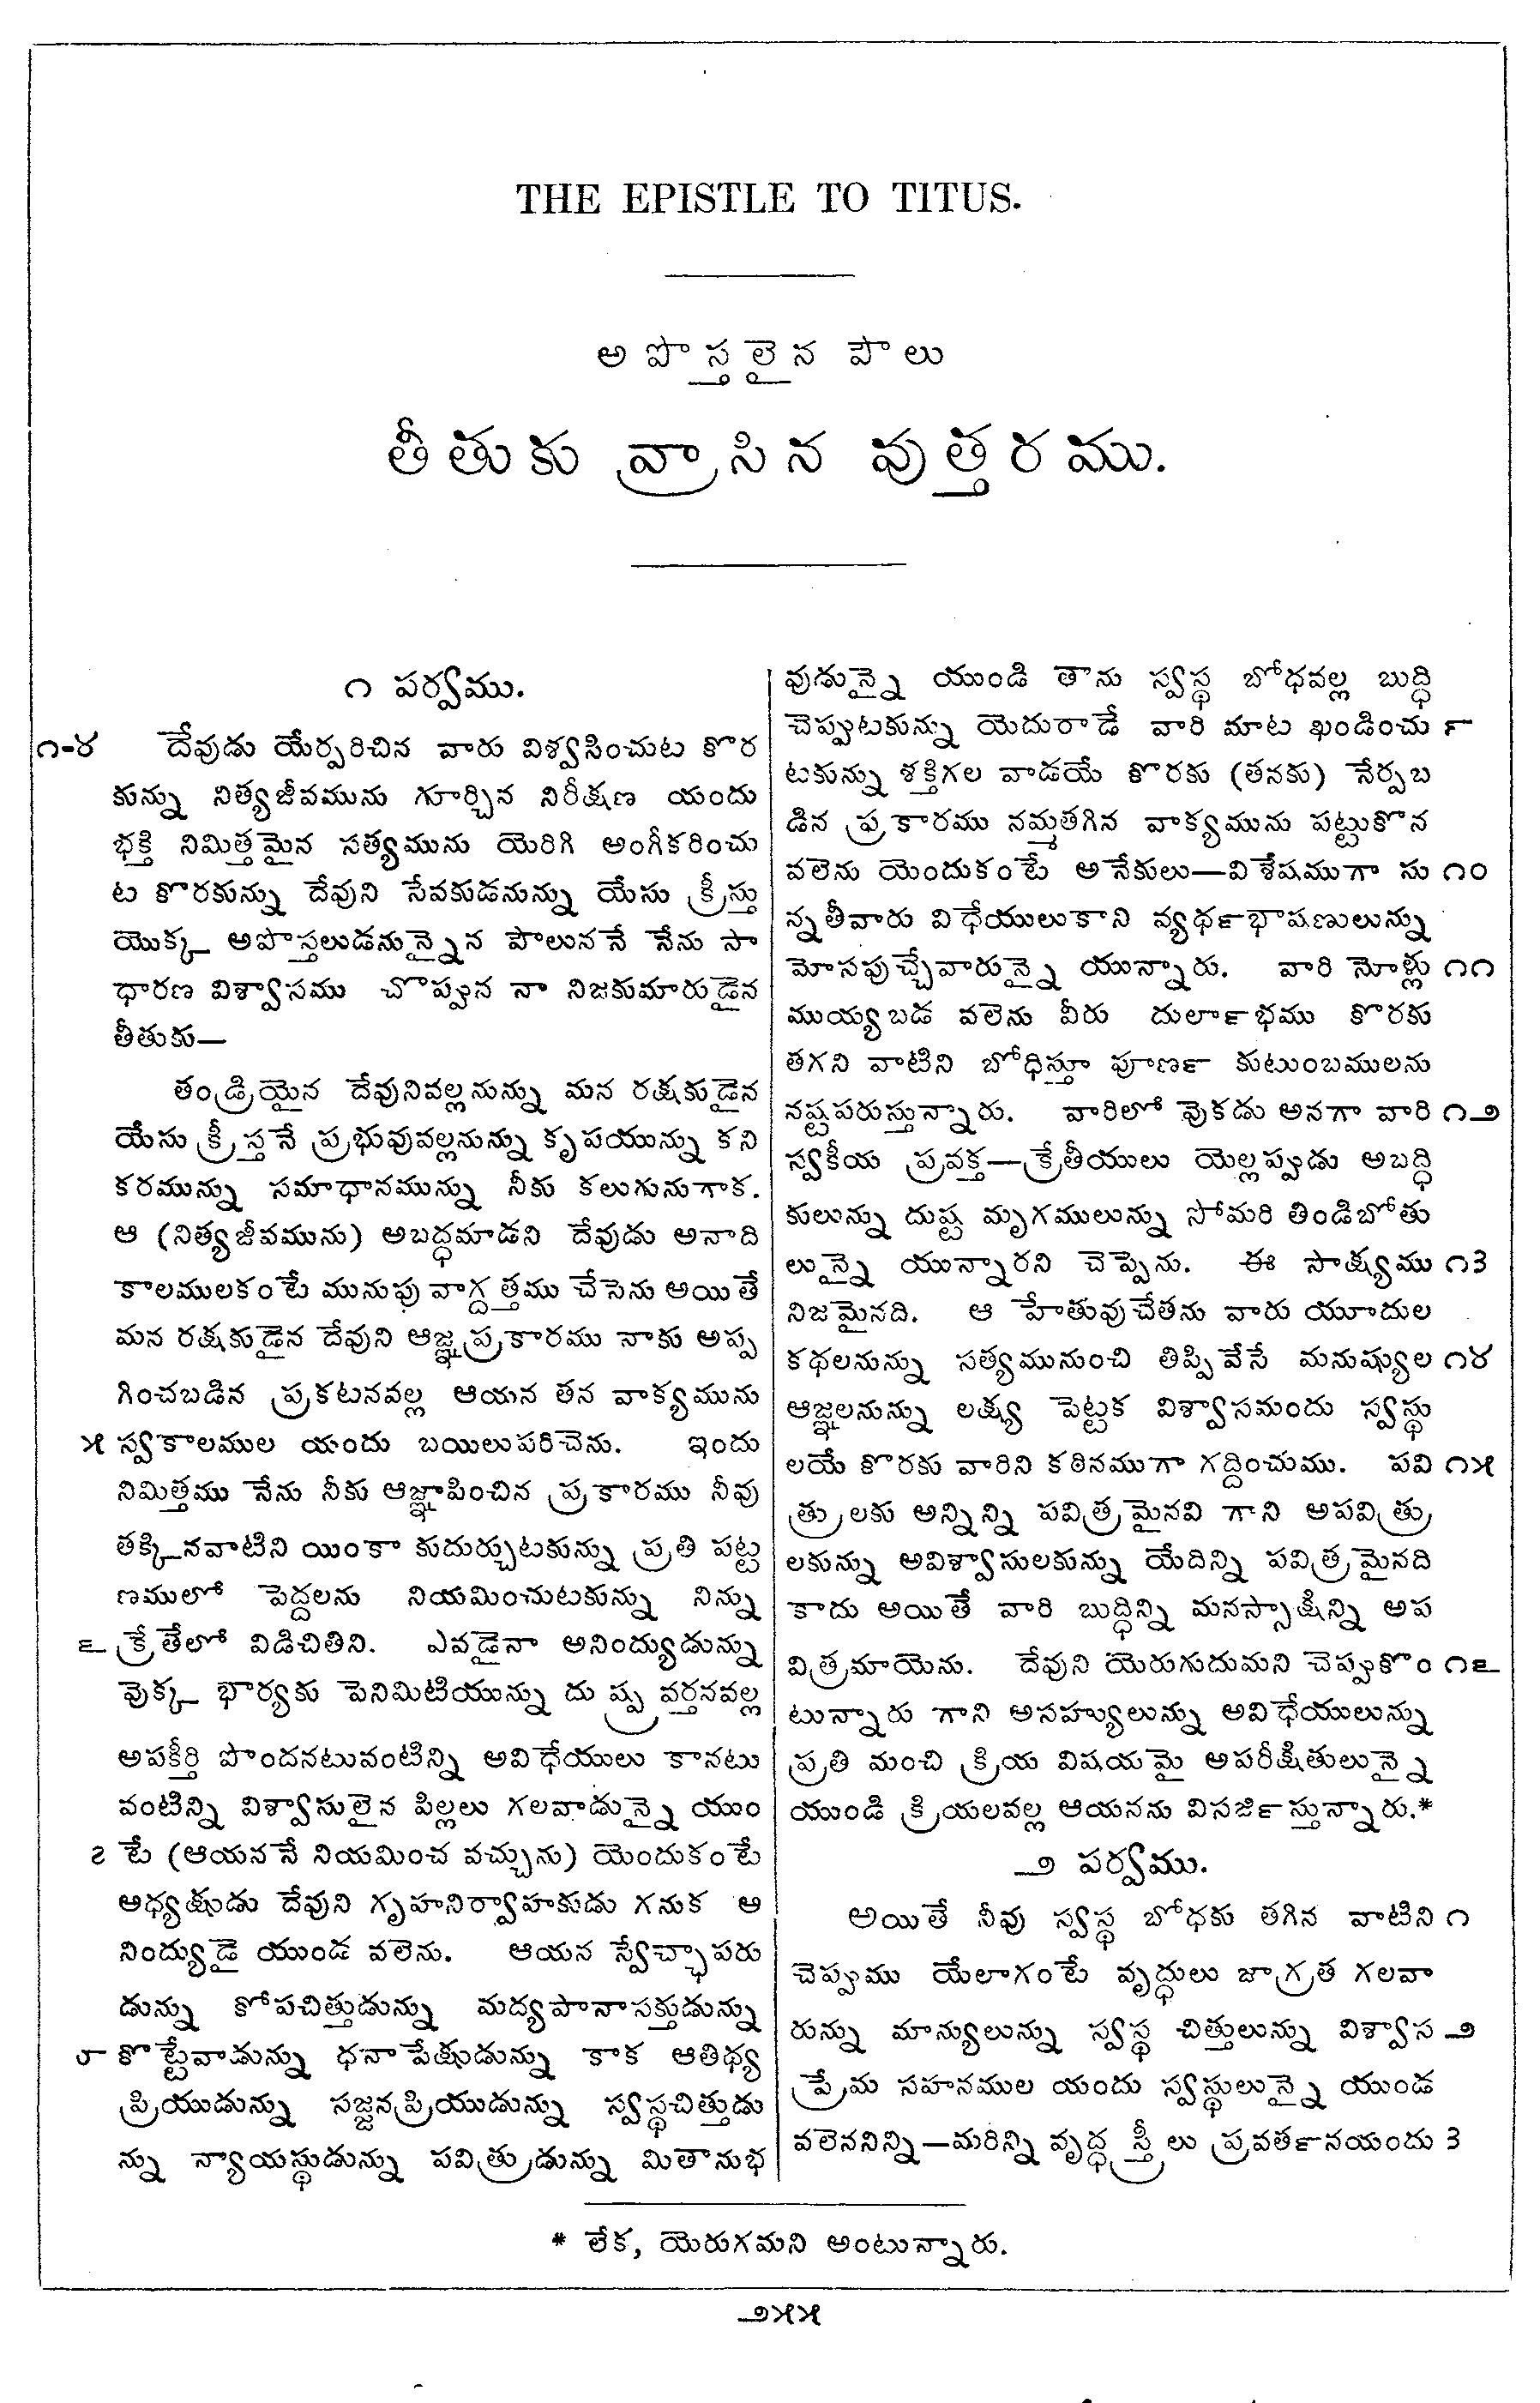 THE EPISTLE TO TITUS.
అపొస్తలైన పౌలు
తీతుకు వ్రాసిన వుత్తరము.
౧ పర్వము.
౧-౪ దేవుడు యేర్పరిచిన వారు విశ్వసించుట కొర
కున్ను నిత్యజీవమును గూర్చిన నిరీక్షణ యందు
భక్తి నిమిత్తమైన సత్యమును యెరిగి అంగీకరించు
ట కొరకున్ను దేవుని సేవకుడనున్ను యేసు క్రీస్తు
యొక్క అపొస్తలుడనున్నైన పౌలుననే నేను సా
ధారణ విశ్వాసము చొప్పున నా నిజకుమారుడైన
తీతుకు—
తండ్రియైన దేవునివల్లనున్ను మన రక్షకుడైన
యేసు క్రీస్తనే ప్రభువువల్లనున్ను కృపయున్ను కని
కరమున్ను సమాధానమున్ను నీకు కలుగునుగాక.
ఆ (నిత్యజీవమును) అబద్ధమాడని దేవుడు అనాది
కాలములకంటే మునుపు వాగ్దత్తము చేసెను అయితే
మన రక్షకుడైన దేవుని ఆజ్ఞప్రకారము నాకు అప్ప
గించబడిన ప్రకటనవల్ల ఆయన తన వాక్యమును
౫ స్వకాలముల యందు బయిలుపరిచెను. ఇందు
నిమిత్తము నేను నీకు ఆజ్ఞాపించిన ప్రకారము నీవు
తక్కినవాటిని యింకా కుదుర్చుటకున్ను ప్రతి పట్ట
ణములో పెద్దలను నియమించుటకున్ను నిన్ను
౬ క్రేతేలో విడిచితిని. ఎవడైనా అనింద్యుడున్ను
వుక్క భార్యకు పెనిమిటియున్ను దుష్ప్రవర్తనవల్ల
అపకీర్తి పొందనటువంటిన్ని అవిధేయులు కానటు
వంటిన్ని విశ్వాసులైన పిల్లలు గలవాడున్నై యుం
౭ టే (ఆయననే నియమించ వచ్చును) యెందుకంటే
అధ్యక్షుడు దేవుని గృహనిర్వాహకుడు గనుక అ
నింద్యుడై యుండ వలెను. ఆయన స్వేచ్ఛాపరు
డున్ను కోపచిత్తుడున్ను మద్యపానాసక్తుడున్ను
౮ కొట్టేవాడున్ను ధనాపేక్షుడున్ను కాక ఆతిథ్య
ప్రియుడున్ను సజ్జనప్రియుడున్ను స్వస్థచిత్తుడు
న్ను న్యాయస్థుడున్ను పవిత్రుడున్ను మితానుభ
వుడున్నై యుండి తాను స్వస్థ బోధవల్ల బుద్ధి
చెప్పుటకున్ను యెదురాడే వారి మాట ఖండించు ౯
టకున్ను శక్తిగల వాడయే కొరకు (తనకు) నేర్పబ
డిన ప్రకారము నమ్మతగిన వాక్యమును పట్టుకొన
వలెను యెందుకంటే అనేకులు—విశేషముగా సు ౧౦
న్నతీవారు విధేయులుకాని వ్యథ౯భాషణులున్ను
మోసపుచ్చేవారున్నై యున్నారు. వారి నోళ్లు ౧౧
ముయ్యబడ వలెను వీరు దులా౯భము కొరకు
తగని వాటిని బోధిస్తూ పూణ౯ కుటుంబములను
నష్టపరుస్తున్నారు. వారిలో వుకడు అనగా వారి ౧౨
స్వకీయ ప్రవక్త—క్రేతీయులు యెల్లప్పుడు అబద్ధి
కులున్ను దుష్ట మృగములున్ను సోమరి తిండిబోతు
లున్నై యున్నారని చెప్పెను. ఈ సాక్ష్యము ౧౩
నిజమైనది. ఆ హేతువుచేతను వారు యూదుల
కథలనున్ను సత్యమునుంచి తిప్పివేసే మనుష్యుల ౧౪
ఆజ్ఞలనున్ను లక్ష్య పెట్టక విశ్వాసమందు స్వస్థు
లయే కొరకు వారిని కఠినముగా గద్దించుము. పవి ౧౫
త్రులకు అన్నిన్ని పవిత్రమైనవి గాని అపవిత్రు
లకున్ను అవిశ్వాసులకున్ను యేదిన్ని పవిత్రమైనది
కాదు అయితే వారి బుద్ధిన్ని మనస్సాక్షిన్ని అప
విత్రమాయెను. దేవుని యెరుగుదుమని చెప్పుకొం ౧౬
టున్నారు గాని అసహ్యులున్ను అవిధేయులున్ను
ప్రతి మంచి క్రియ విషయమై అపరీక్షితులున్నై
యుండి క్రియలవల్ల ఆయనను విసజి౯స్తున్నారు.*
౨ పర్వము.
అయితే నీవు స్వస్థ బోధకు తగిన వాటిని ౧
చెప్పుము యేలాగంటే వృద్ధులు జాగ్రత గలవా
రున్ను మాన్యులున్ను స్వస్థ చిత్తులున్ను విశ్వాస ౨
ప్రేమ సహనముల యందు స్వస్థులున్నై యుండ
వలెననిన్ని—మరిన్ని వృద్ధ స్త్రీలు ప్రవత౯నయందు ౩
* లేక, యెరుగమని అంటున్నారు.
౨౫౫